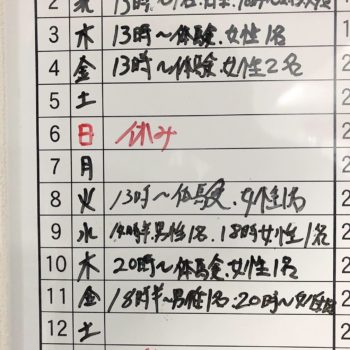 2 水 13時〜
3 木 13時〜体験.女性1名
4 金 13時〜体験.女性2名
5 土
6 日 休み
7 月
8 火 13時〜体験.女性1名
9 水 14時半.男性1名.18時女性1名
10 木 20時〜体験.女性1名
11 金 18時半〜男性1名.20時〜女性
12 土